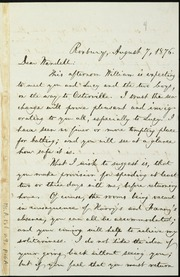 Roxbury, August 7, 1876.
Dear Wendell,
This afternoon William is expecting
to meet you and Lucy and the two boys,
on the way to Osterville. I trust the
change will prove pleasant and invig-
orating to you all, especially to Lucy. I
have seen no finer or more tempting place
for bathing; and you will be at a place
how safe it is.
What I wish to suggest is, that
you make provision for spending at least
two or three days with me, before returning
home. Of course, the rooms being vacant
as a consequence of Harry's and Fanny's
absence, you can all be accommodated;
and your coming will help to relieve my
solitariness. I do not like the idea of
your going back without seeing you,
but if you feel that you must return